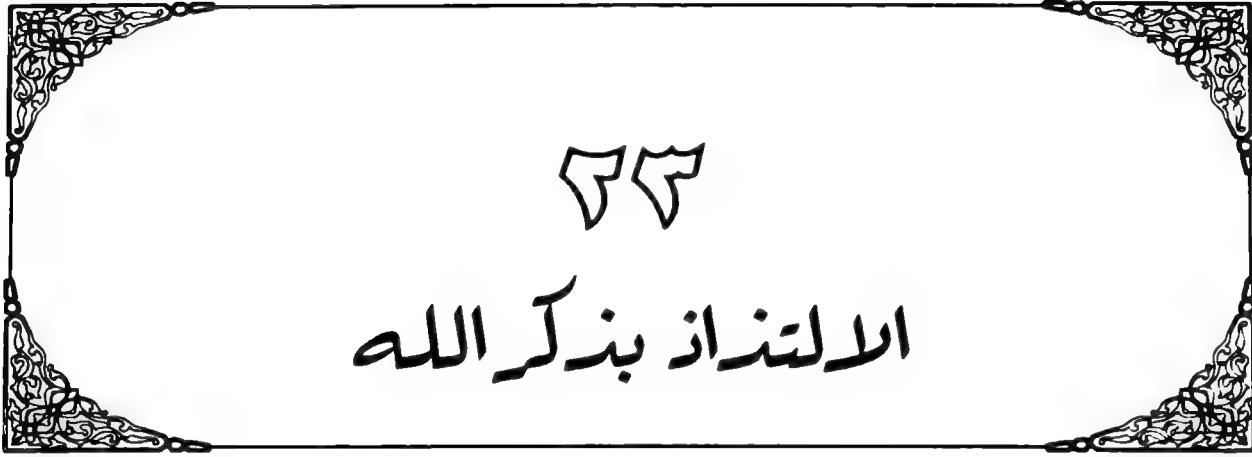 ٢٣
الالتذاذ بذكر الله